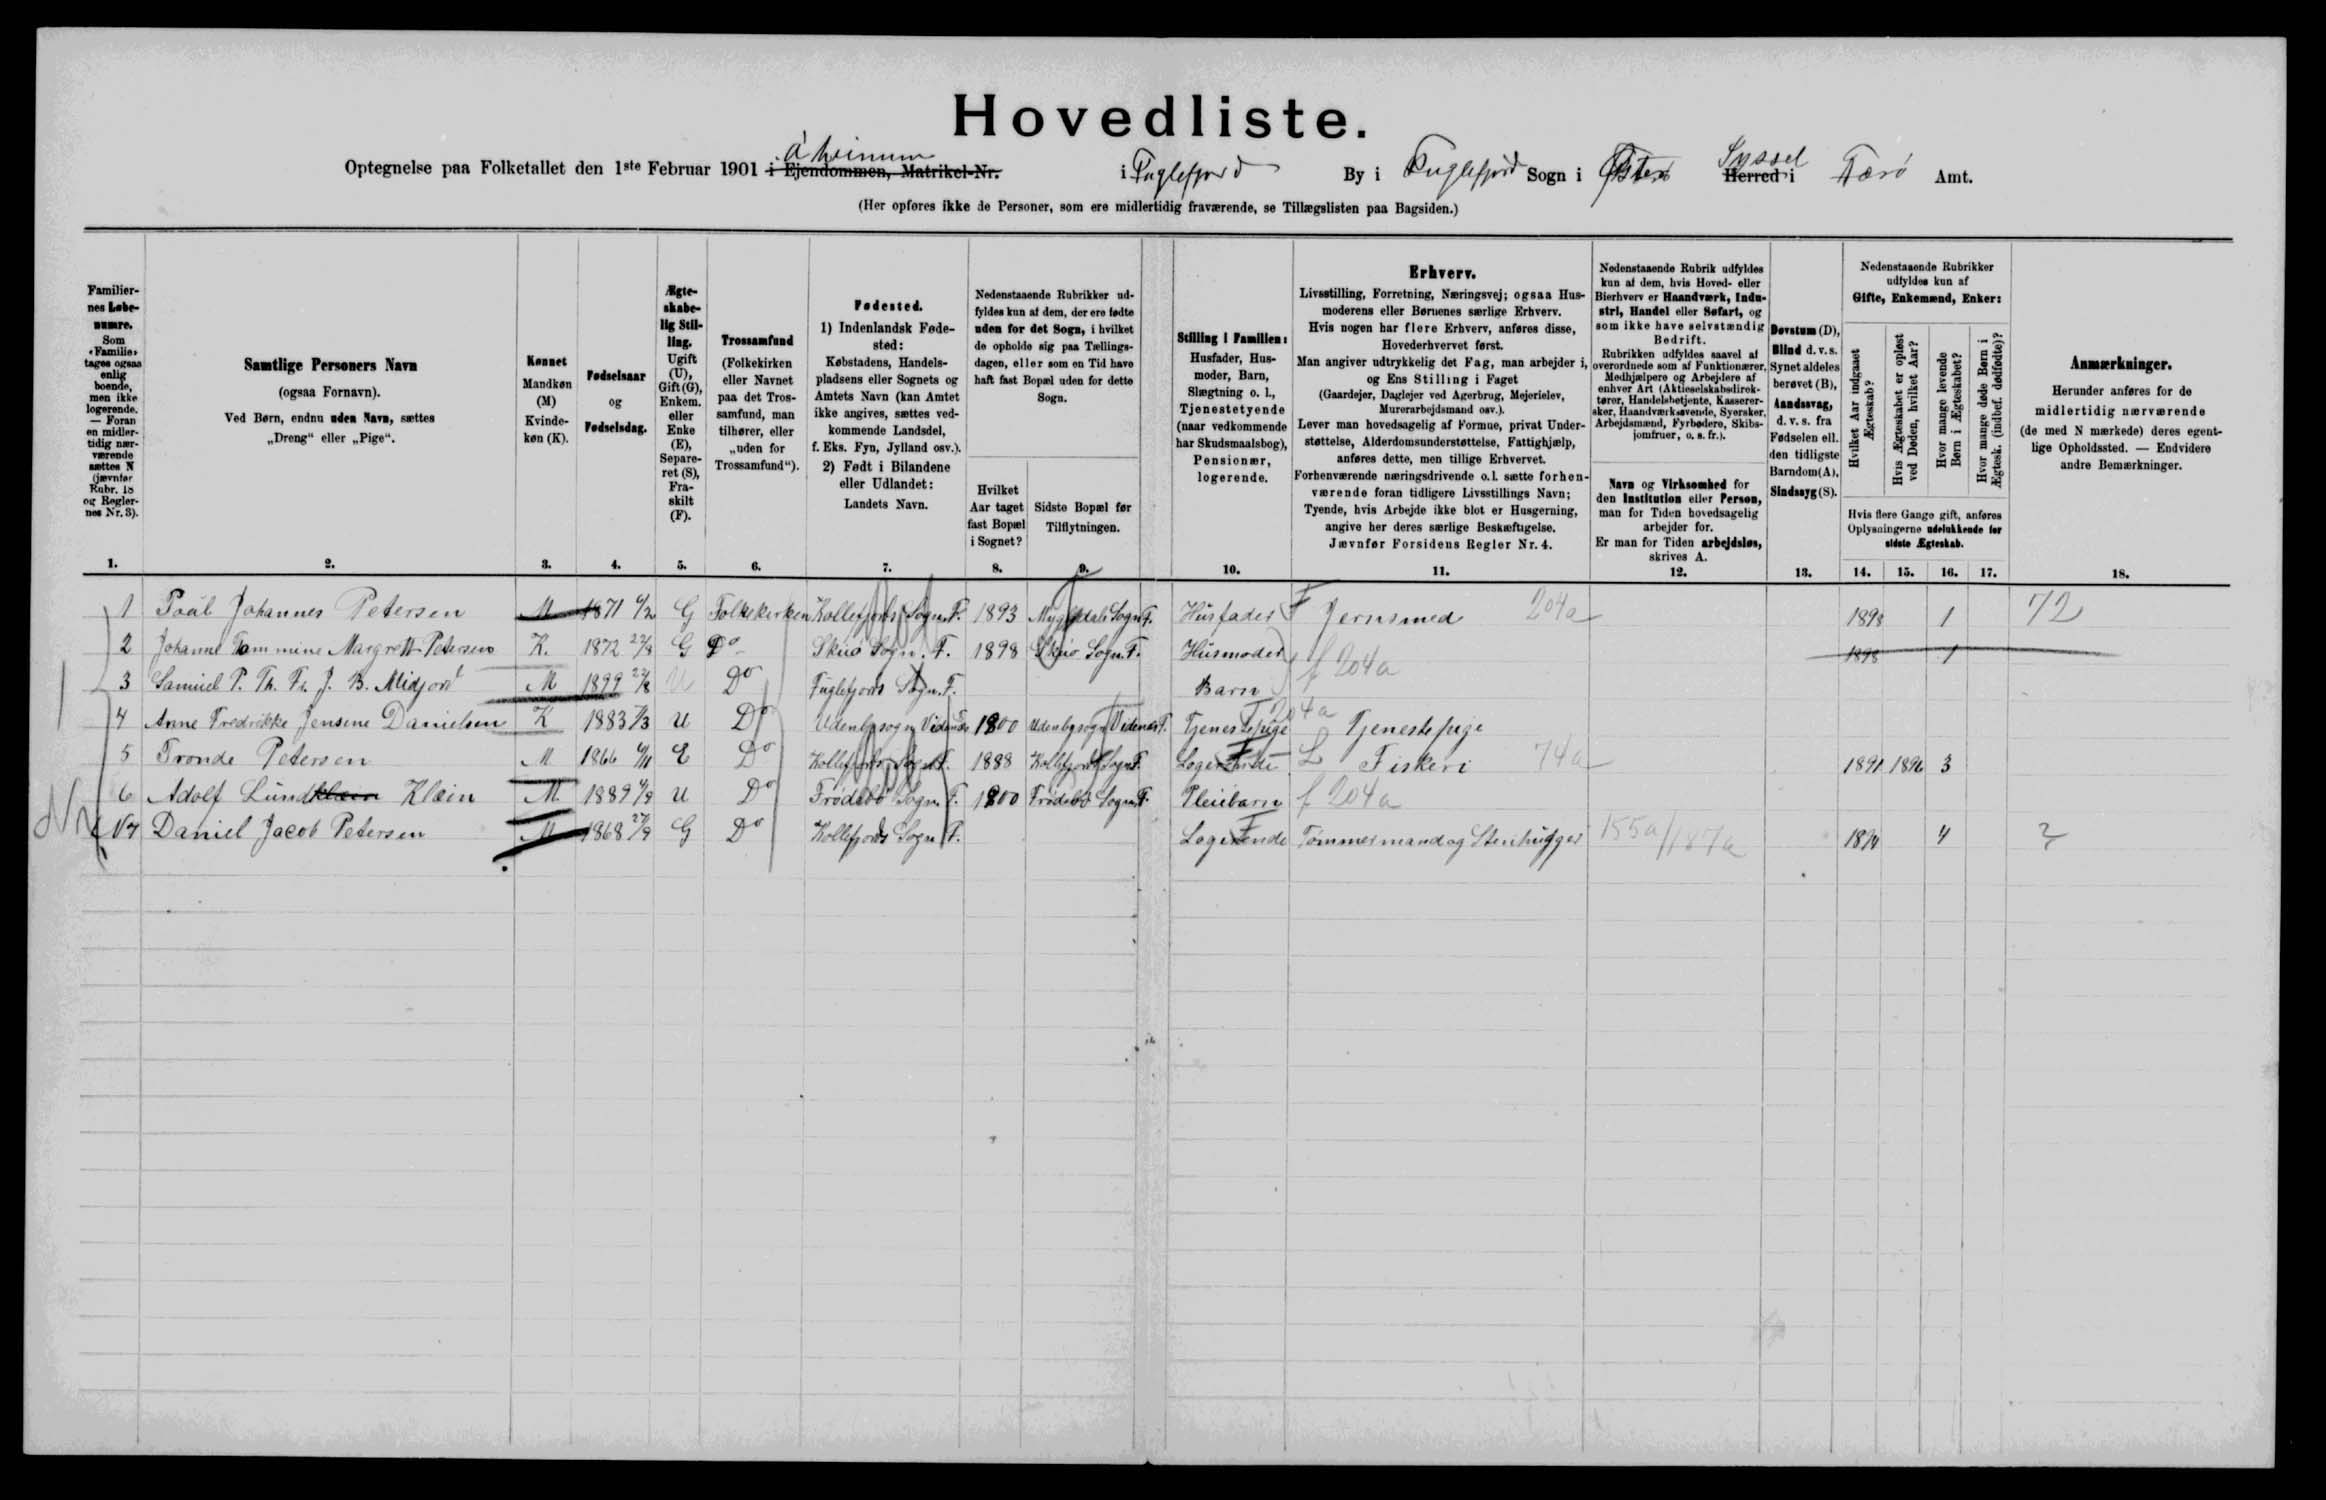 Hovedliste.
Optegnelse paa Folketallet den 1ste Februar 1901 i Ejendommen, Matrikel-Nr. á heinum i Fuglefjord By i Fuglefjord Sogn i Østerø Herred Syssel i Færø Amt.
(Her opføres ikke de Personer, som ere midlertidig fraværende, se Tillægslisten paa Bagsiden.)
Familiernes Løbenumre. Som «Familie» tages ogsaa enlig boende, men ikke logerende. — Foran en midlertidig nærværende sættes N (jævnfør Rubr. 18 og Reglernes Nr. 3).
Samtlige Personers Navn (ogsaa Fornavn). Ved Børn, endnu uden Navn, sættes „Dreng“ eller „Pige“.
Kønnet Mandkøn (M) Kvindekøn (K).
Fødselsaar og Fødselsdag.
Ægteskabelig Stilling. Ugift (U), Gift (G), Enkem. eller Enke (E), Separeret (S), Fraskilt (F).
Trossamfund (Folkekirken eller Navnet paa det Trossamfund, man tilhører, eller „uden for Trossamfund“).
Fødested. 1) Indenlandsk Fødested: Købstadens, Handelspladsens eller Sognets og Amtets Navn (kan Amtet ikke angives, sættes vedkommende Landsdel, f. Eks. Fyn, Jylland osv.). 2) Født i Bilandene eller Udlandet: Landets Navn.
Nedenstaaende Rubrikker udfyldes kun af dem, der ere fødte uden for det Sogn, i hvilket de opholde sig paa Tællingsdagen, eller som en Tid have haft fast Bopæl uden for dette Sogn.
Hvilket Aar taget fast Bopæl i Sognet?
Sidste Bopæl før Tilflytningen.
Stilling i Familien: Husfader, Husmoder, Barn, Slægtning o. l., Tjenestetyende (naar vedkommende har Skudsmaalsbog), Pensionær, logerende.
Erhverv.
Livsstilling, Forretning, Næringsvej; ogsaa Husmoderens eller Børnenes særlige Erhverv.
Hvis nogen har flere Erhverv, anføres disse, Hovederhvervet først.
Man angiver udtrykkelig det Fag, man arbejder i, og Ens Stilling i Faget (Gaardejer, Daglejer ved Agerbrug, Mejerielev, Murerarbejdsmand osv.).
Lever man hovedsagelig af Formue, privat Understøttelse, Alderdomsunderstøttelse, Fattighjælp, anføres dette, men tillige Erhvervet.
Forhenværende næringsdrivende o. l. sætte forhenværende foran tidligere Livsstillings Navn;
Tyende, hvis Arbejde ikke blot er Husgerning, angive her deres særlige Beskæftigelse.
Jævnfør Forsidens Regler Nr. 4.
Nedenstaaende Rubrik udfyldes kun af dem, hvis Hoved- eller Bierhverv er Haandværk, Industri, Handel eller Søfart, og som ikke have selvstændig Bedrift.
Rubrikken udfyldes saavel af overordnede som af Funktionærer, Medhjælpere og Arbejdere af enhver Art (Aktieselskabsdirektører, Handelsbetjente, Kasserersker, Haandværkssvende, Syersker, Arbejdsmænd, Fyrbødere, Skibsjomfruer, o. s. fr.).
Navn og Virksomhed for den Institution eller Person, man for Tiden hovedsagelig arbejder for.
Er man for Tiden arbejdsløs, skrives A.
Døvstum (D), Blind d. v. s. Synet aldeles berøvet (B), Aandssvag, d. v. s. fra Fødselen ell. den tidligste Barndom (A), Sindssyg (S).
Nedenstaaende Rubrikker udfyldes kun af Gifte, Enkemænd, Enker:
Hvilket Aar indgaaet Ægteskab?
Hvis Ægteskabet er opløst ved Døden, hvilket Aar?
Hvor mange levende Børn i Ægteskabet?
Hvor mange døde Børn i Ægtesk. (indbef. dødfødte)?
Hvis flere Gange gift, anføres Oplysningerne udelukkende for sidste Ægteskab.
Anmærkninger. Herunder anføres for de midlertidig nærværende (de med N mærkede) deres egentlige Opholdssted. — Endvidere andre Bemærkninger.
1. 2. 3. 4. 5. 6. 7. 8. 9. 10. 11. 12. 13. 14. 15. 16. 17. 18.
1 Poul Johannes Petersen M 1871 G Folkekirken Kollefjords Sogn. F. 1893 Mygledals Sogn F. Husfader F Jernsmed 204a 1898 1 72
2 Johanne Tommine Margrett Petersen K. 1872 G Do Skuø Sogn. F. 1898 Skuø Sogn. F. Husmoder f 204a 1898 1
3 Samuel P. Th. Fr. J. B. Midjord M 1899 U Do Fuglefjords Sogn. F. Barn
4 Anne Fredrikke Jensene Danielsen K 1883 U Do Udenbysogn Viderø 1900 Udenbysogn Viderø F. Tjenestepige T 204a Tjenestepige
5 Tronde Petersen M 1866 E Do Kollefjords Sogn F. 1888 Kollefjords Sogn F. Logerende L Fiskeri 74a 1891 1896 3
6 Adolf Lund Klein Klein M. 1889 U Do Frodebø Sogn. F. 1900 Frodebø Sogn F. Pleiebarn f 204a
N7 Daniel Jacob Petersen M 1868 G Do Kollefjords Sogn F. Logerende Tømmermand og Stenhugger 155a/187a 1894 4